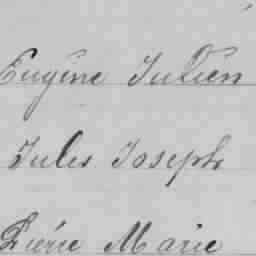 Eugène Julien
Jules Joseph
Pierre Marie